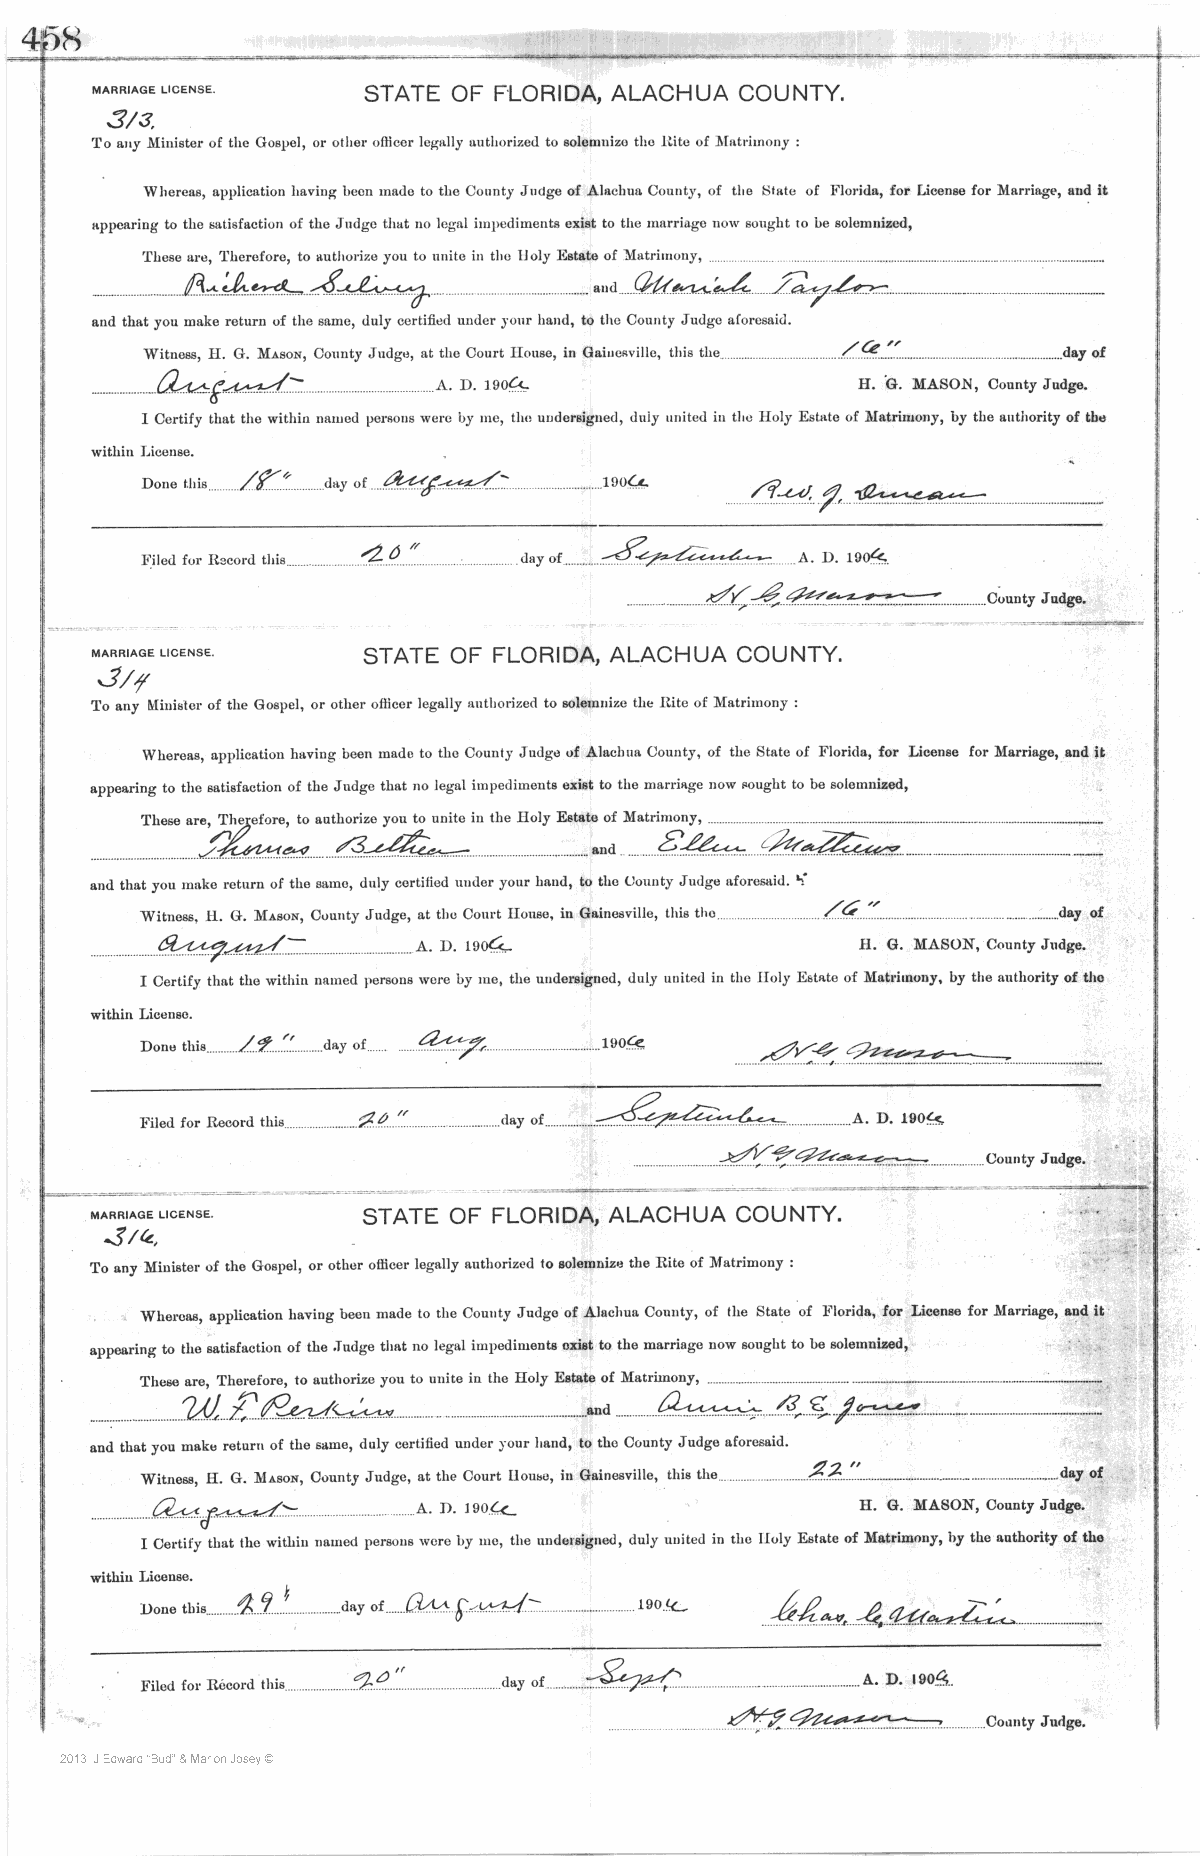 458
MARRIAGE LICENSE. STATE OF FLORIDA, ALACHUA COUNTY.
313.
To any Minister of the Gospel, or other officer legally authorized to solemnize the Rite of Matrimony :
Whereas, application having been made to the County Judge of Alachua County, of the State of Florida, for License for Marriage, and it
appearing to the satisfaction of the Judge that no legal impediments exist to the marriage now sought to be solemnized,
These are, Therefore, to authorize you to unite in the Holy Estate of Matrimony,
Richard Selvey and Mariah Taylor
and that you make return of the same, duly certified under your hand, to the County Judge aforesaid.
Witness, H. G. MASON, County Judge, at the Court House, in Gainesville, this the 16" day of
August A. D. 1906 H. G. MASON, County Judge.
I Certify that the within named persons were by me, the undersigned, duly united in the Holy Estate of Matrimony, by the authority of the
within License.
Done this 18" day of August 1906 Rev. J. Duncan
Filed for Record this 20" day of September A. D. 1906
H. G. Mason County Judge.
MARRIAGE LICENSE. STATE OF FLORIDA, ALACHUA COUNTY.
314
To any Minister of the Gospel, or other officer legally authorized to solemnize the Rite of Matrimony :
Whereas, application having been made to the County Judge of Alachua County, of the State of Florida, for License for Marriage, and it
appearing to the satisfaction of the Judge that no legal impediments exist to the marriage now sought to be solemnized,
These are, Therefore, to authorize you to unite in the Holy Estate of Matrimony,
Thomas Bethea and Ellen Mathews
and that you make return of the same, duly certified under your hand, to the County Judge aforesaid.
Witness, H. G. MASON, County Judge, at the Court House, in Gainesville, this the 16" day of
August A. D. 1906 H. G. MASON, County Judge.
I Certify that the within named persons were by me, the undersigned, duly united in the Holy Estate of Matrimony, by the authority of the
within License.
Done this 19" day of Aug. 1906 H. G. Mason
Filed for Record this 20" day of September A. D. 1906
H. G. Mason County Judge.
MARRIAGE LICENSE. STATE OF FLORIDA, ALACHUA COUNTY.
316.
To any Minister of the Gospel, or other officer legally authorized to solemnize the Rite of Matrimony :
Whereas, application having been made to the County Judge of Alachua County, of the State of Florida, for License for Marriage, and it
appearing to the satisfaction of the Judge that no legal impediments exist to the marriage now sought to be solemnized,
These are, Therefore, to authorize you to unite in the Holy Estate of Matrimony,
W. F. Perkins and Annie B. E. Jones
and that you make return of the same, duly certified under your hand, to the County Judge aforesaid.
Witness, H. G. MASON, County Judge, at the Court House, in Gainesville, this the 22" day of
August A. D. 1906 H. G. MASON, County Judge.
I Certify that the within named persons were by me, the undersigned, duly united in the Holy Estate of Matrimony, by the authority of the
within License.
Done this 29" day of August 1906 Chas. C. Martin
Filed for Record this 20" day of Sept. A. D. 1906
H. G. Mason County Judge.
2013 J Edward "Bud" & Marion Josey ©